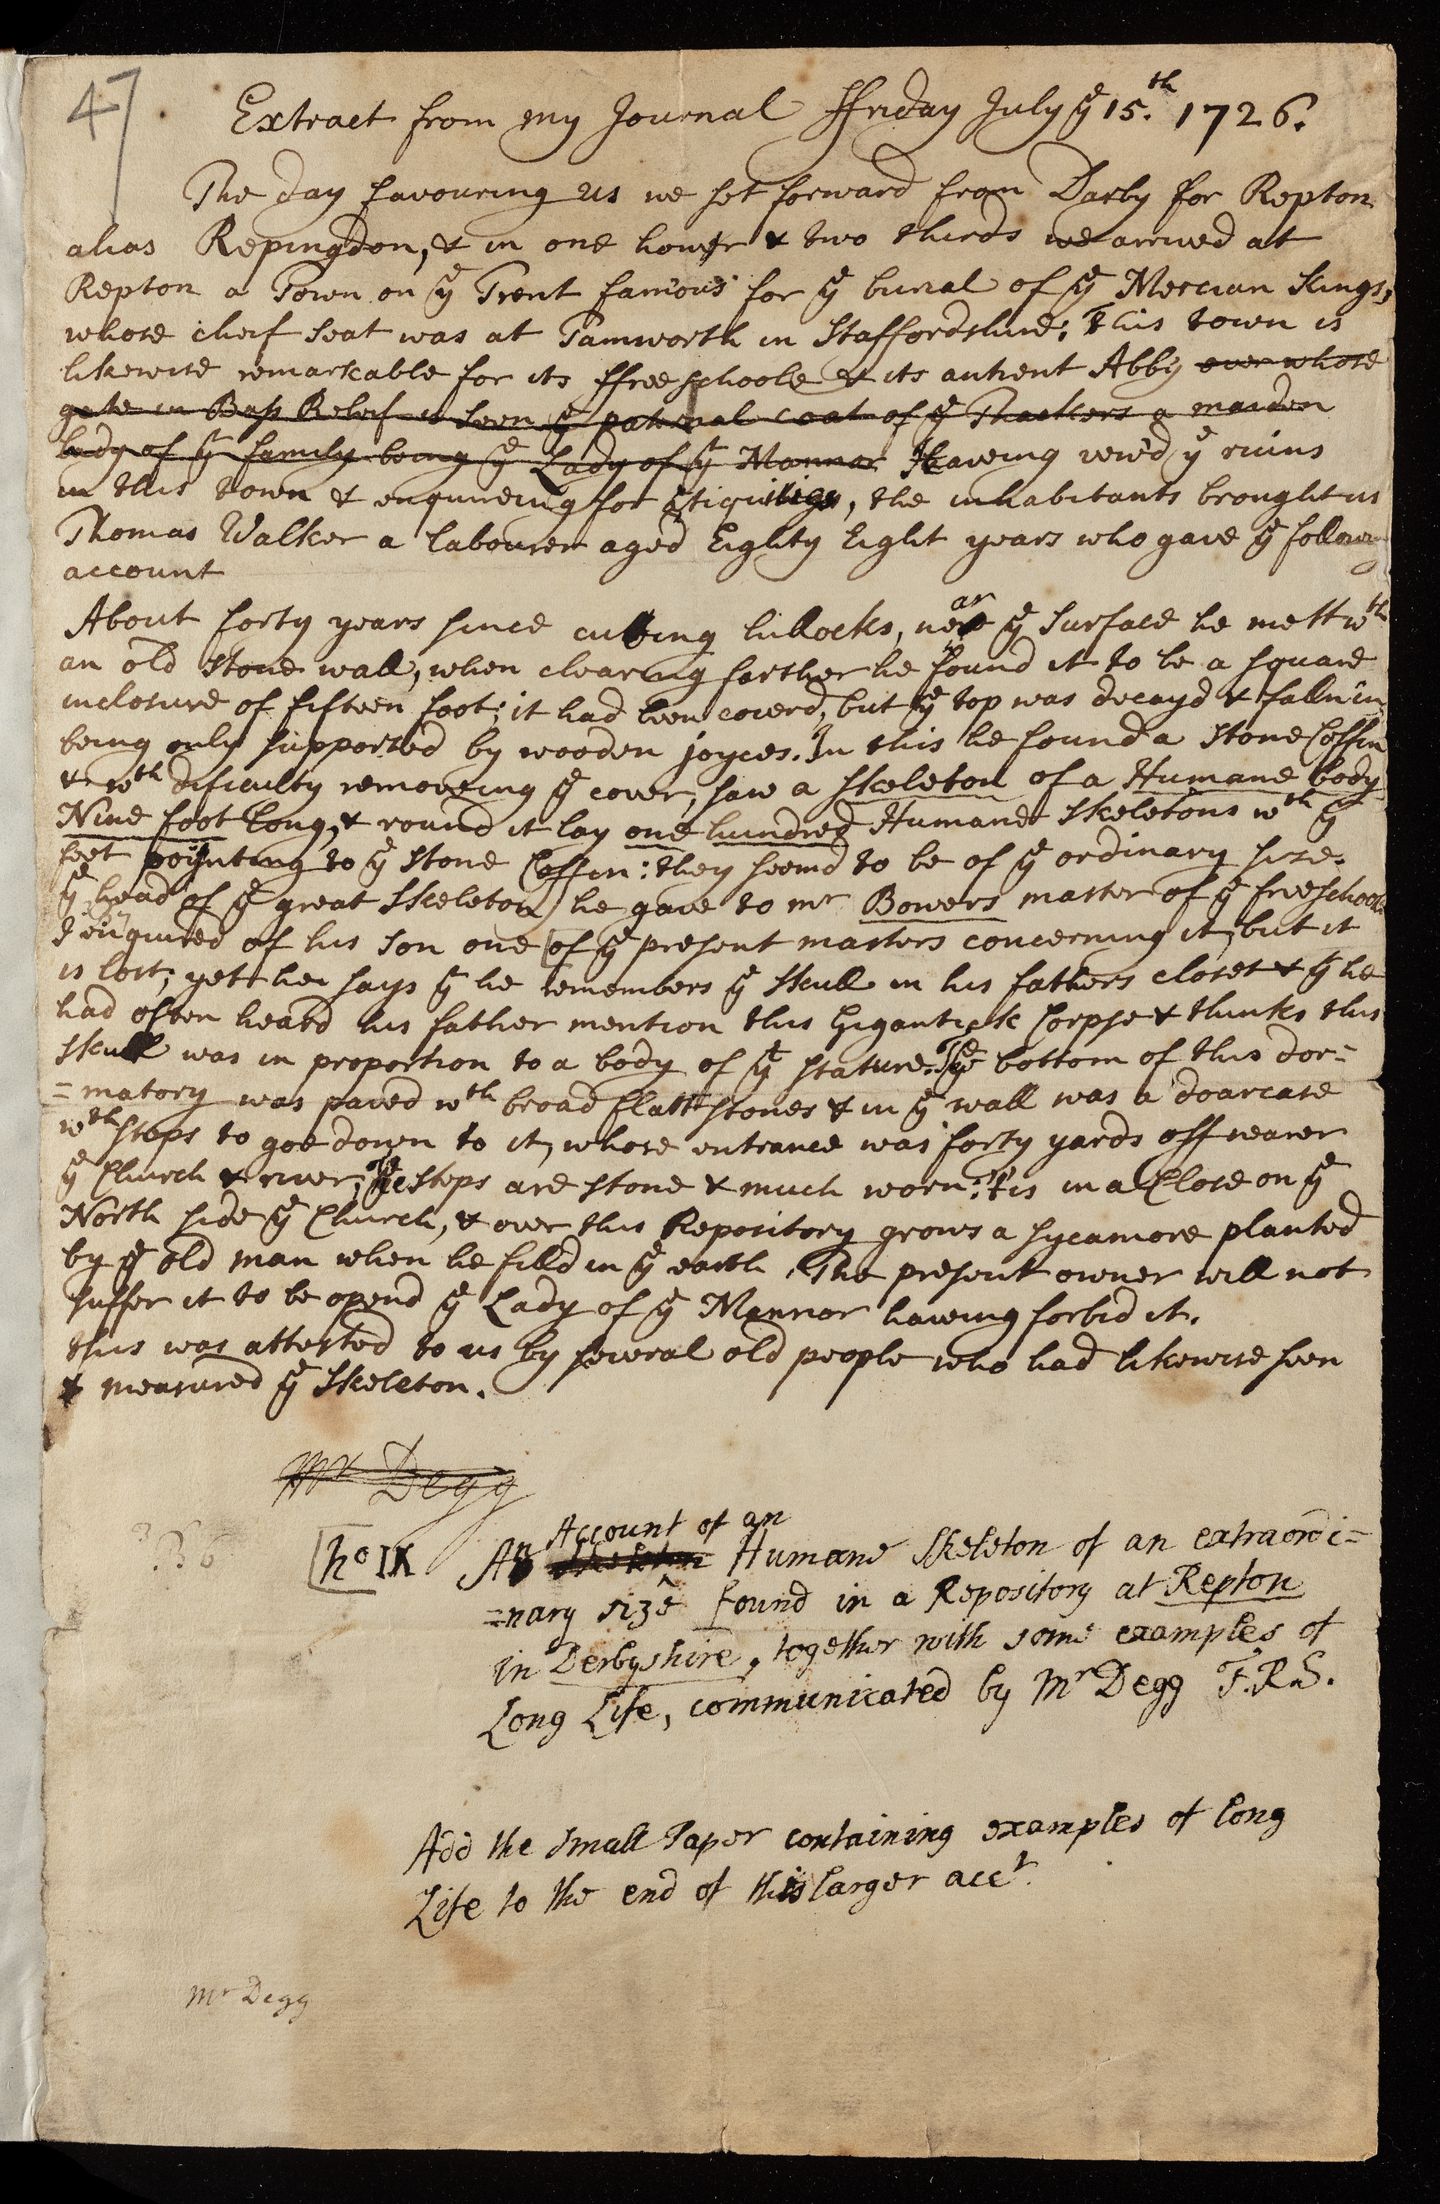 47
Extract from my Journal ffriday July ye 15.th 1726.
The day favouring us we set forward from Darby for Repton
alias Repingdon, & in one hower & two thirds we arrived at
Repton a Town on ye Trent famous for ye burial of ye Mercian Kings,
whose cheif seat was at Tamworth in Staffordshire; This town is
likewise remarkable for its ffree schoole & its antient Abby over whose
gate in Bass Releif is seen ye paternal coat of ye Thackers a maiden
lady of ye family being ye Lady of ye Mannor Haveing vew'd ye ruins
in this town & enquireing for antiquities, the inhabitants brought us
Thomas Walker a labourer aged Eighty Eight years who gave ye following
account
About forty years since cutting hillocks, near ye surface he mett wth
an old stone wall, when clearing farther he found it to be a square
inclosure of fifteen foot; it had been coverd, but ye top was decayd & falln in
being only supported by wooden joyces. In this he found a stone Coffin
& wth dificulty removeing ye cover, saw a skeleton of a Humane body
Nine foot long, & round it lay one hundred Humane Skeletons wth ye
feet poynting to ye stone Coffin: they seemd to be of ye ordinary size.
ye head of ye great Skeleton he gave to mr Bowers master of ye free schoole
I enquired of his son one of ye present masters concerning it, but it
is lost; yet he says yt he remembers ye Skull in his fathers closet & yt he
had often heard his father mention this Gigantick Corpse & thinks this
Skull was in proportion to a body of yt stature. The bottom of this dor=
=matory was paved wth broad flatt stones & in ye wall was a doarcase
wth steps to goe down to it, whose entrance was forty yards off nearer
ye Church & river; The steps are stone & much worn. 'tis in a Close on ye
North side ye Church, & over this Repository grows a sycamore planted
by ye old man when he filld in ye earth. The present owner will not
suffer it to be opend ye Lady of ye Mannor haveing forbid it.
this was attested to us by several old people who had likewise seen
& measured ye Skeleton.
Mr Degg
no IX
An Account of an Humane Skeleton of an extraordi=
=nary size found in a Repository at Repton
in Derbyshire, together with some examples of
Long Life, communicated by Mr Degg F.R.S.
Add the small Paper containing examples of long
Life to the end of this larger acct.
Mr Degg